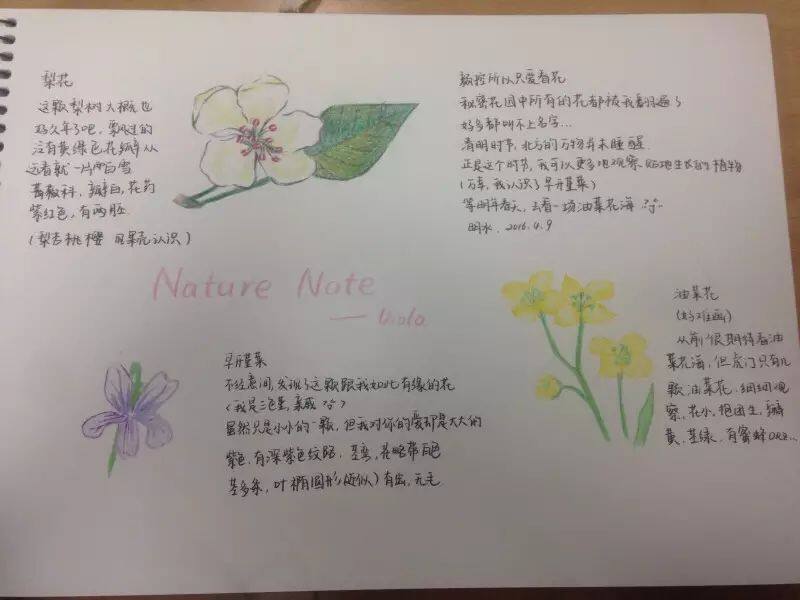 梨花
这颗梨树大概也
好久年了吧，要风过的
没有黄绿色花瓣从
远看就一片雪白雪
蔷薇科，瓣白，花药
紫红色，有两胚
（梨杏桃樱 果壳认识）
数控所以只爱看花
秘密花园中所有的花都被我翻遍了
好多都叫不上名字...
清明时节，北方的万物并未睡醒
正是这个时节，我可以更多地观察贴地生长的植物
（万幸，我认识了早开堇菜）
等明年春天，去看一场油菜花海
明水．2016.4.9
Nature Note
— Viola
油菜花
（好难画）
从前很期待看油
菜花海，但门只有几
颗油菜花．细细观
察，花小，抱团生，瓣
黄，茎绿，有蜜蜂
早开堇菜
不经意间，发现了这颗跟我如此有缘的花
（我是三色堇，亲戚）
虽然只是小小的一颗，但我对你的爱却是大大的
紫色，有深紫色纹路．茎弯，花略带白色
茎多条，叶椭圆形（近似）有齿，无毛